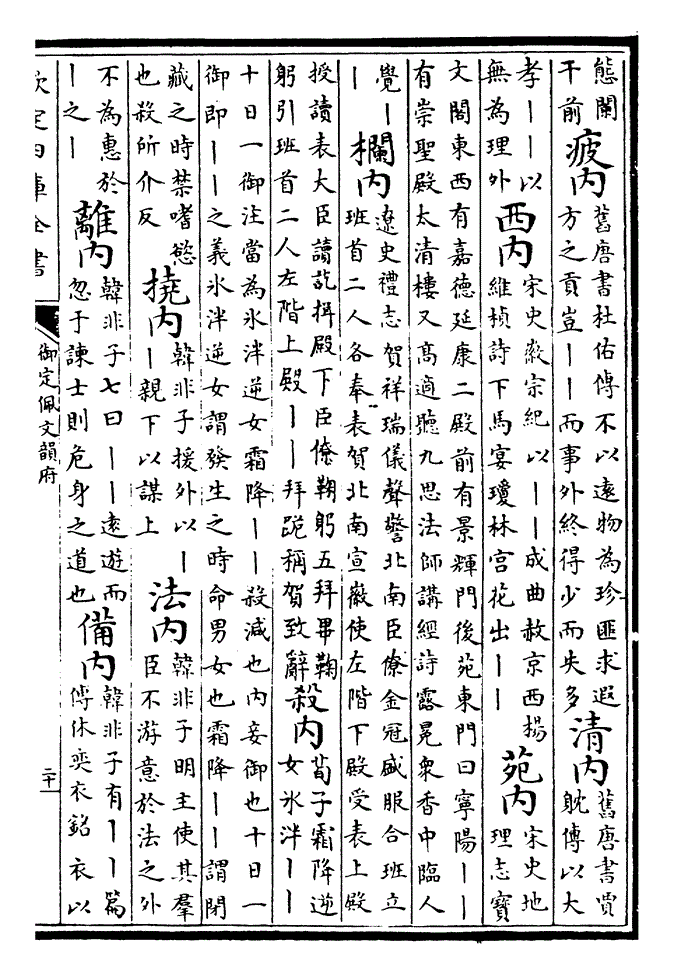 態闌干前疲内舊唐書杜佑傳不以遠物為珍匪求遐方之貢豈丨丨而事外終得少而失多清内舊唐書賈躭傳以大
孝丨丨以無為理外西内宋史徽宗紀以丨丨成曲赦京西楊維楨詩下馬宴瓊林宫花出丨丨苑内宋史地理志寶
文閣東西有嘉德延康二殿前有景輝門後苑東門曰寧陽丨丨有崇聖殿太清樓又髙適聽九思法師講經詩露冕衆香中臨人
覺丨丨欄内遼史禮志賀祥瑞儀聲警北南臣僚金冠盛服合班立班首二人各奉表賀北南宣徽使左階下殿受表上殿
授讀表大臣讀訖揖殿下臣僚鞠躬五拜畢鞠躬引班首二人左階上殿丨丨拜跪稱賀致辭殺内荀子霜降逆女氷泮丨丨
十日一御注當為氷泮逆女霜降丨丨殺減也内妾御也十日一御即丨丨之義氷泮逆女謂發生之時命男女也霜降丨丨謂閉
藏之時禁嗜慾也殺所介反撓内韓非子援外以丨丨親下以謀上法内韓非子明主使其羣臣不游意於法之外
不為惠於丨之丨離内韓非子七曰丨丨遠遊而忽于諫士則危身之道也備内韓非子有丨丨篇傅休奕衣銘衣以
欽定四庫全書
御定佩文韻府
二十